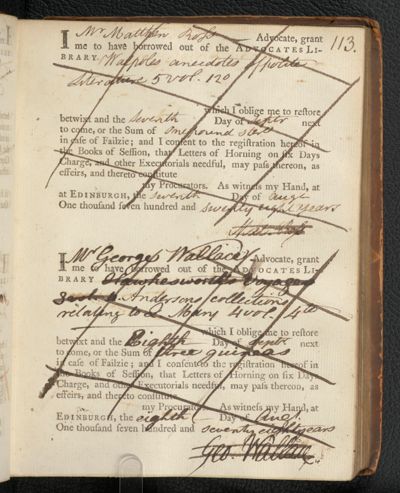 113.
I Mr Matthew Ross Advocate, grant
me to have borrowed out of the ADVOCATES LI-
BRARY Walpoles anecdotes of polite
Literature 5 vol. 12o
which I oblige me to restore
betwixt and the seventh Day of next
to come, or the Sum of one pound ster
in case of Failzie; and I consent to the registration hereof in
the Books of Session, that Letters of Horning on six Days
Charge, and other Executorials needful, may pass thereon, as
effeirs, and thereto constitute
my Procurators. As witness my Hand, at
at EDINBURGH, the seventh Day of augt
One thousand seven hundred and seventy eight years
Matt. Ross
I Mr George Wallace Advocate, grant
me to have borrowed out of the ADVOCATES LI-
BRARY Hawkesworth's Voyages
Andersons collections
relating to Mary 4 vol. 4to
which I oblige me to restore
betwixt and the Eighth Day of Septr next
to come, or the Sum of three guineas
in case of Failzie; and I consent to the registration hereof in
the Books of Session, that Letters of Horning on six Days
Charge, and other Executorials needful, may pass thereon, as
effeirs, and thereto constitute
my Procurators. As witness my Hand, at
EDINBURGH, the eighth Day of Augt.
One thousand seven hundred and seventy eight years
Geo. Wallace